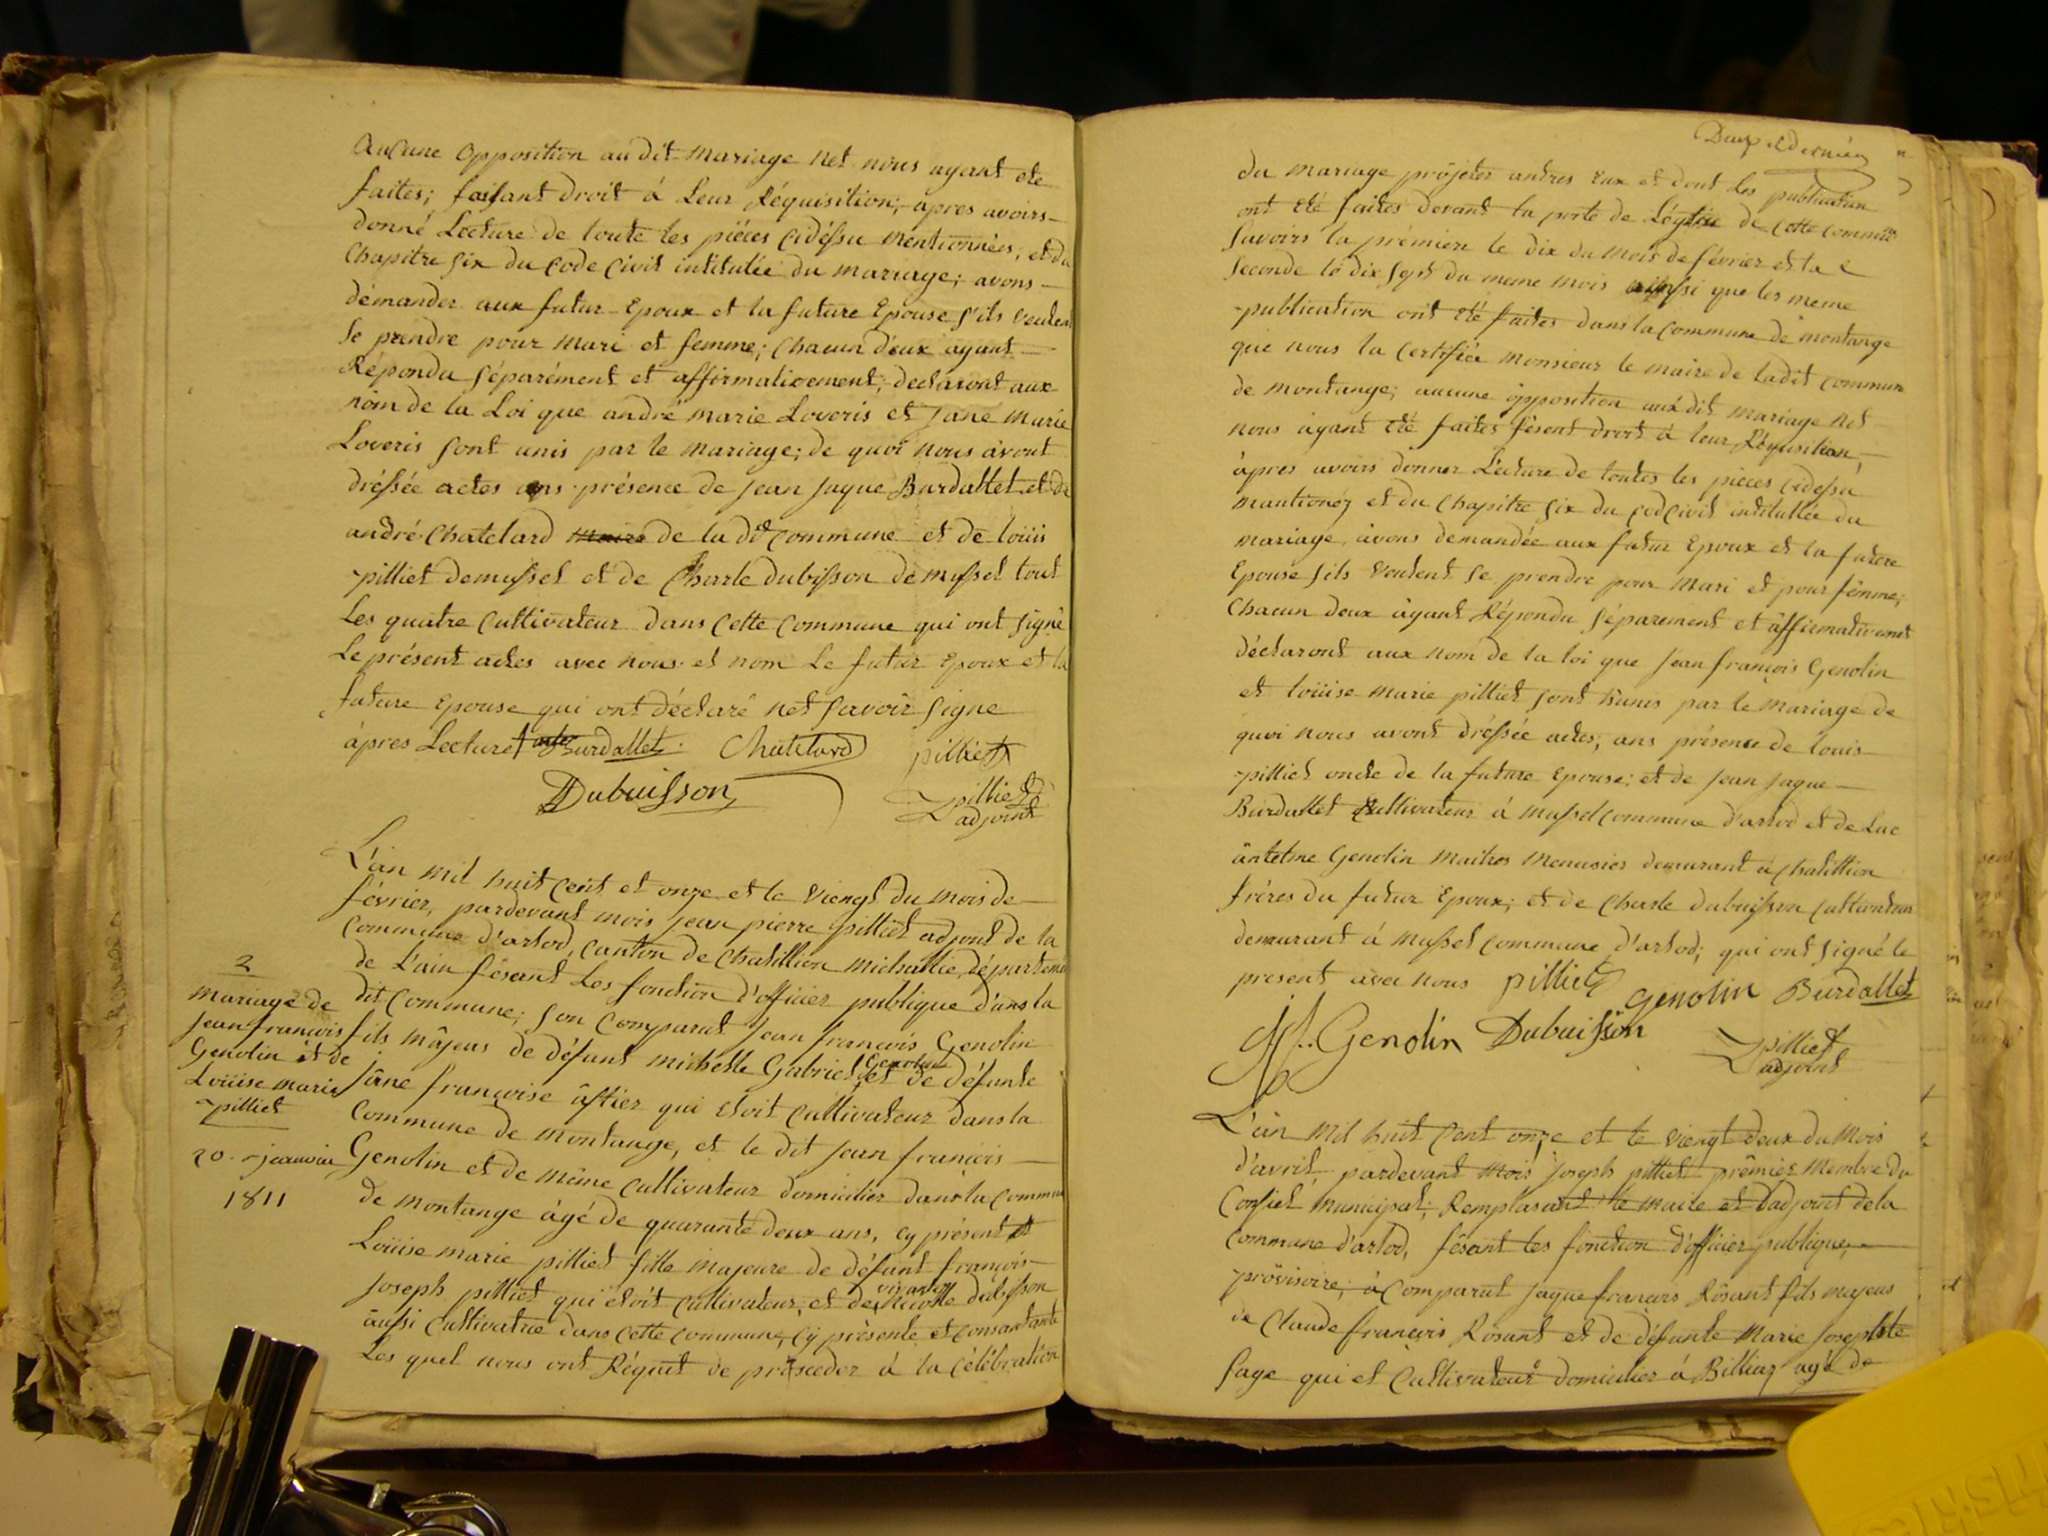 aucune opposition au dit mariage net nous ayant ete
faites; faisant droit à leur Réquisition; apres avoirs
donné Lecture de toute les pièces cidéssu mentionnées, et du
Chapitre six du code civil intitulée du mariage; avons
démander aux futur Epoux et la future Epouse s'ils veulen
se prendre pour mari et femme; chacun d'eux ayant
Répondu séparément et affirmativement; declaront aux
nom de la Loi que andré marie Loveris et jane marie
Loveris sont unis par le mariage; de quoi nous avont
dréssée actes ans présence de jean jaque Burdallet et de
andré Chatelard maire de la dit commune et de loüis
pilliet demussel et de Charle dubisson de mussel tout
Les quatre cultivateur dans cette commune qui ont signé
Le présent actes avec nous et nom le futur Epoux et la
future Epouse qui ont déclaré net savoir signe
àpres Lecture Burdallet Chatelard pilliet
Dubuisson pilliet
adjoint
L'ain mil huit cent et onze et le viengt du mois de
février, pardevant mois jean pierre pilliet adjoint de la
commune d'arlod, canton de chatillion michaillie, départem
de L'ain fésant Les fonction d'officier publique dans la
dit commune; son comparut jean françois Genolin
fils màjeur de défunt michelle Gabriel Genolin et de défunte
jâne françoise âstier qui etoit cultivateur dans la
commune de montange, et le dit jean francois
Genolin et de même cultivateur domicilier dans la commun
de montange àgé de quarante deux ans, cy présent et
Loüise marie pilliet fille majeure de défunt françois
joseph pilliet qui etoit cultivateur, et de vivante nicolle dubisson
aussi cultivatrice dans cette commune, cy présente et consantante
Les quel nous ont Réquit de proseder à la célébration
2
mariage de
jean francois
Genolin et de
Loüise marie
pilliet
20 janvier
1811
Deux et dernier
du mariage projeter antres eux et dont les publication
ont été faites devant la porte de Léglise de cette commune
savoirs la prémiere le dix du mois de février et la
seconde le dix sept du meme mois ainsi que les meme
publication ont été faites dans la commune de montange
que nous la certifiée monsieur le maire de ladit commune
de montange; aucune opposition aux dit mariage net
nous àyant été faites fésent droit à leur Réquisition;
àpres avoirs donner Lecture de toutes les pièces cidessu
mantionéz et du chapitre six du codcivil intitullée du
mariage, àvons demandée aux futur Epoux et la future
Epouse sils veulent se prendre pour mari et pour femme;
chacun deux àyant Répondu séparement et àffirmativement
déclaront aux nom de la loi que jean françois Genolin
et loüise marie pilliet sont hunis par le mariage de
quoi nous avont dréssée actes; ans présence de louis
pilliet oncle de la future Epouse; et de jean jaque
Burdallet Cultivateur à mussel commune d'arlod et de Luc
ântelme Genolin maitres menusier demurant à chatillion
frères du futur Epoux; et de charle dubuisson cultivateur
demurant à mussel commune d'arlod; qui ont signé le
present avec nous pilliet Genolin Burdallet
Genolin Dubuisson pilliet
adjoint
L'ain mil huit cent onze et le viengt deux du mois
d'avril, pardevant mois joseph pilliet prémier membre du
Consiel municipal, Remplasant le maire et l'adjoint de la
commune d'arlod, fésant les fonction d'officier publique,
provisoire; à comparut jaque francois Rosant fils majeur
de Claude francois Rosant et de défunte marie josephte
sage qui et cultivateur domicilier à Billiaz agé de